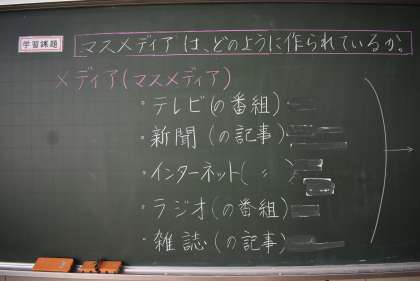 学習課題
マスメディアは、どのように作られているか。
メディア(マスメディア)
・テレビ(の番組)
・新聞(の記事)
・インターネット(〃)
・ラジオ(の番組)
・雑誌(の記事)